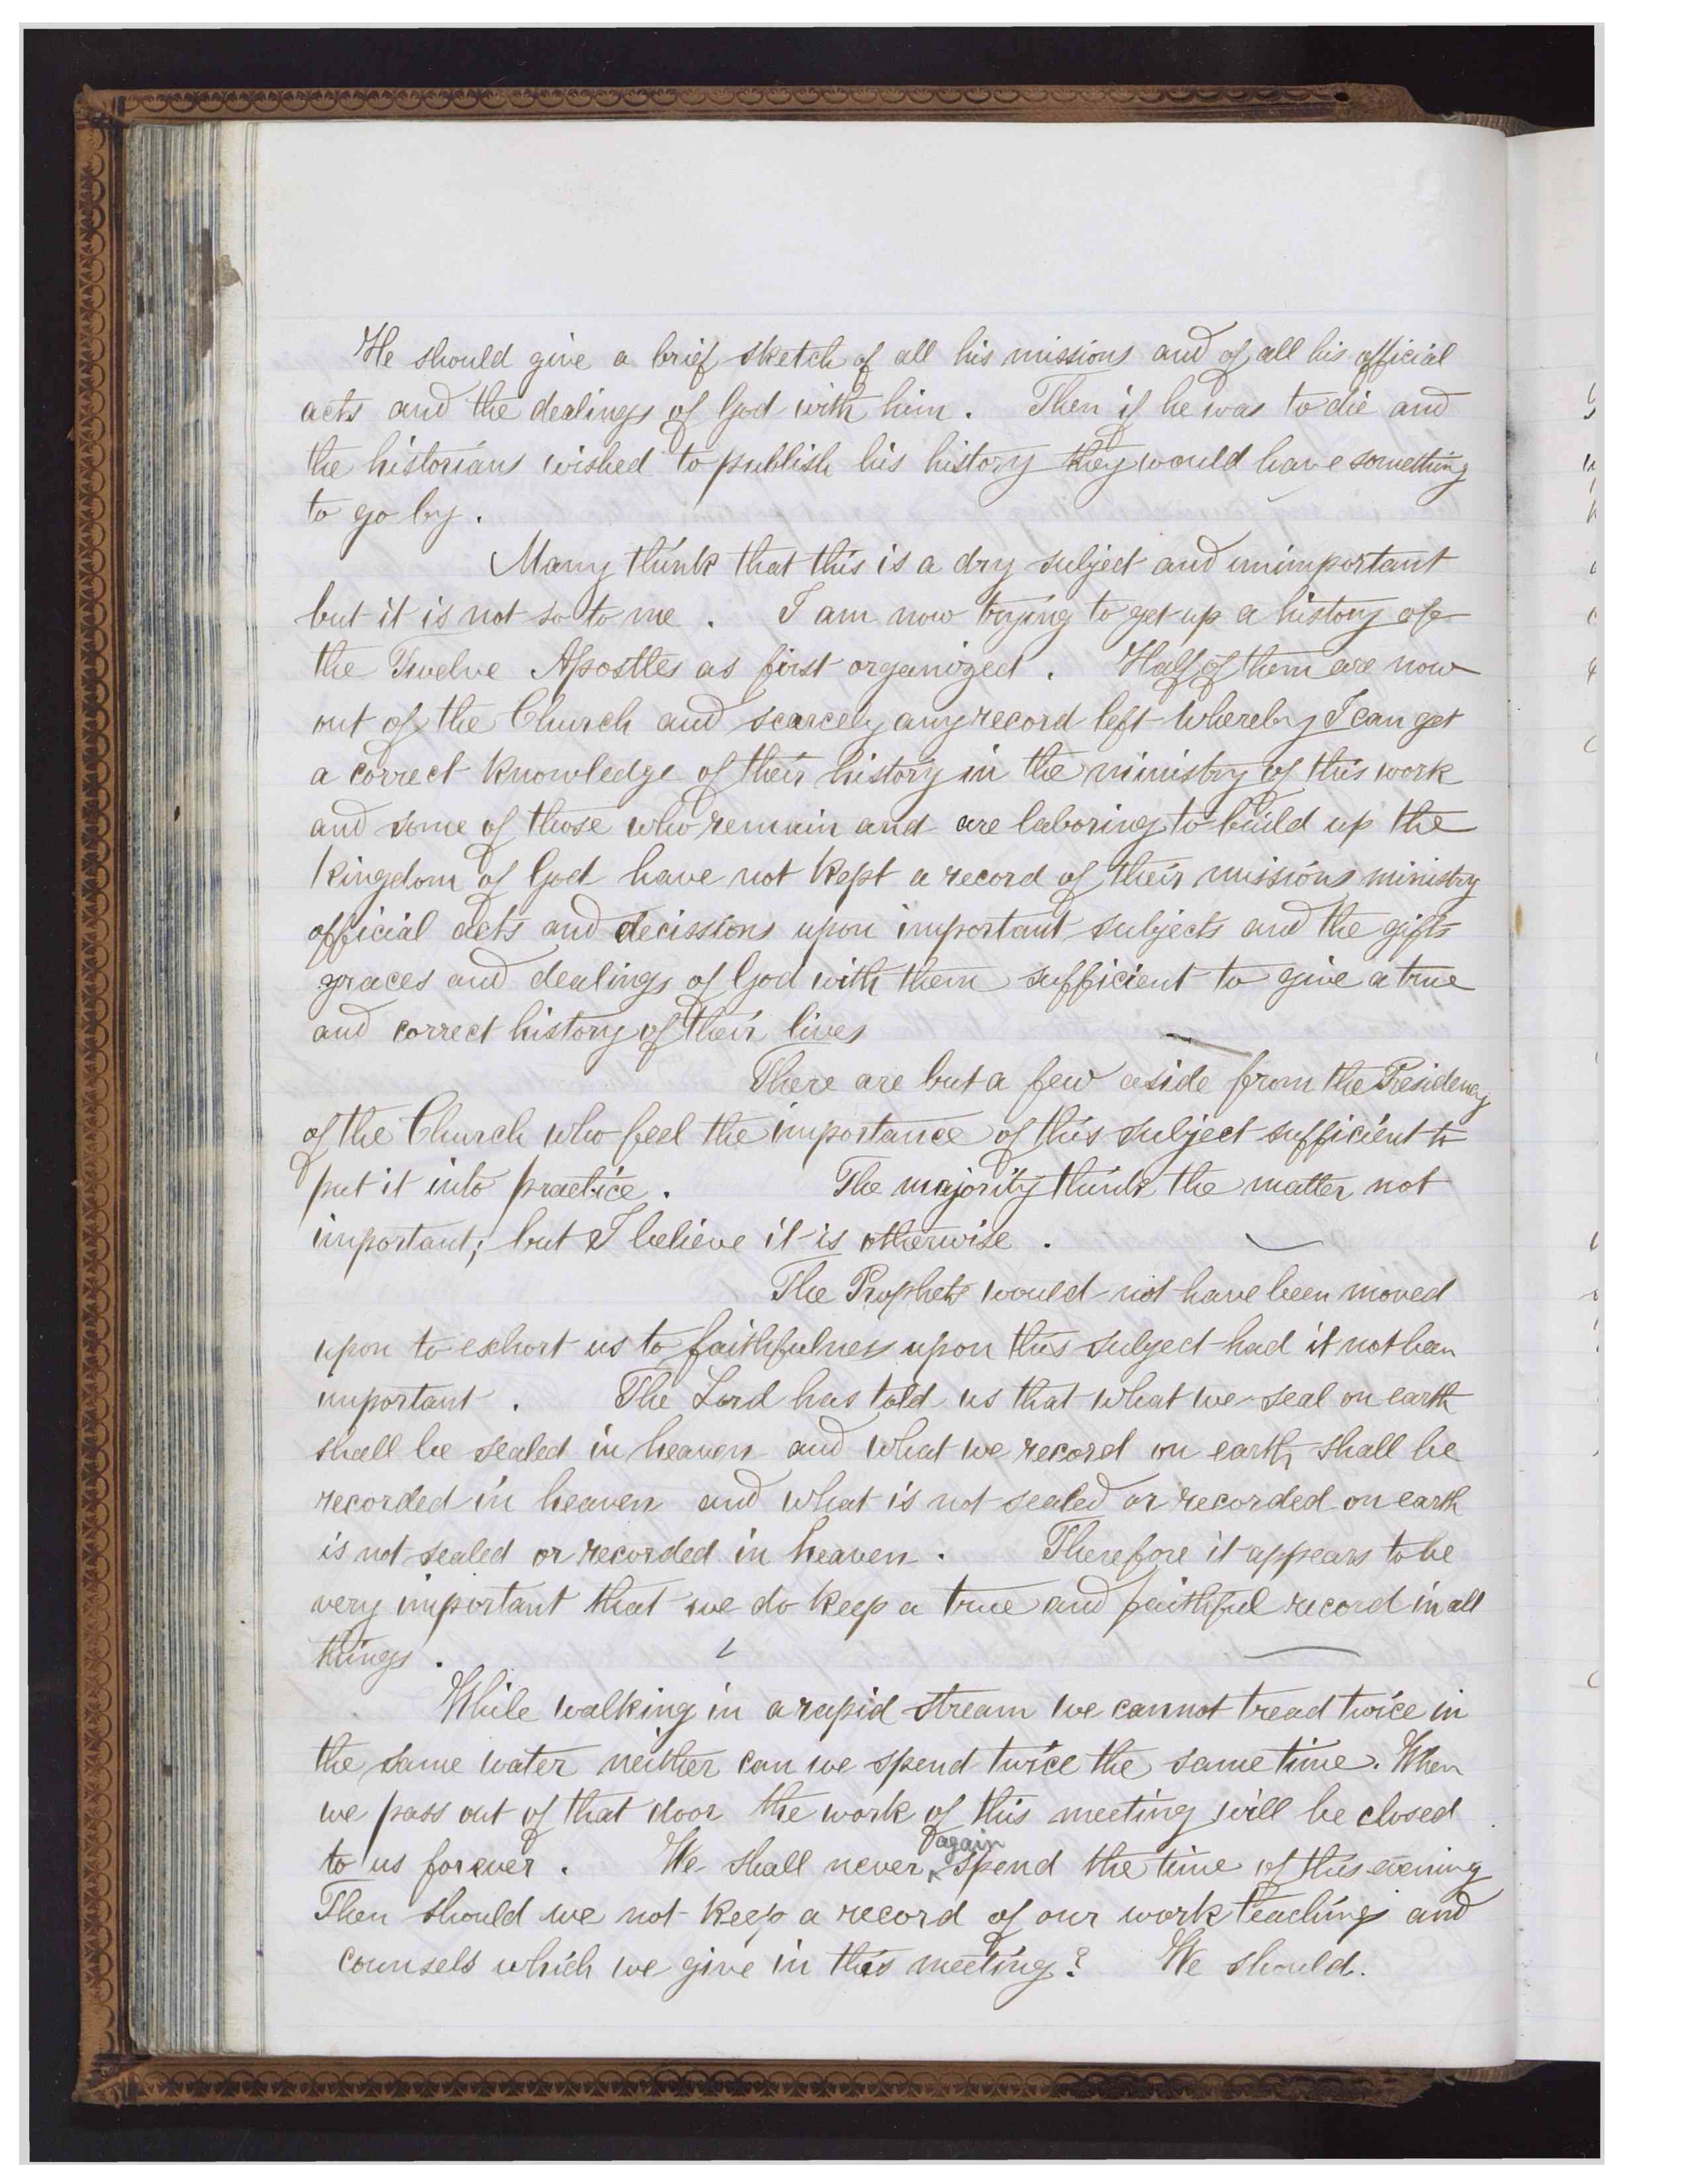 He should give a brief sketch of all his missions and of all his official
acts and the dealings of God with him. Then if he was to die and
the historians wished to publish his history they would have something
to go by.
Many think that this is a dry subject and unimportant
but it is not so to me. I am now trying to get up a history of
the Twelve Apostles as first organized. Half of them are now
out of the Church and scarcely any record left whereby I can get
a correct knowledge of their history in the ministry of this work
and some of those who remain and are laboring to build up the
kingdom of God have not kept a record of their missions ministry
official acts and decissions upon important subjects and the gifts
graces and dealings of God with them sufficient to give a true
and correct history of their lives
There are but a few aside from the Presidency
of the Church who feel the importance of this subject sufficient to
put it into practice. The majority think the matter not
important; but I believe it is otherwise.
The Prophets would not have been moved
upon to exhort us to faithfulness upon this subject had it not been
important. The Lord has told us that what we seal on earth
shall be sealed in heaven and what we record on earth shall be
recorded in heaven and what is not sealed or recorded on earth
is not sealed or recorded in heaven. Therefore it appears to be
very important that we do keep a true and faithful record in all
things.
While walking in a rapid stream we cannot tread twice in
the same water neither can we spend twice the same time. When
we pass out of that door the work of this meeting will be closed
to us forever. We shall never again spend the time of this evening
Then should we not keep a record of our work teachings and
counsels which we give in this meeting? We should.